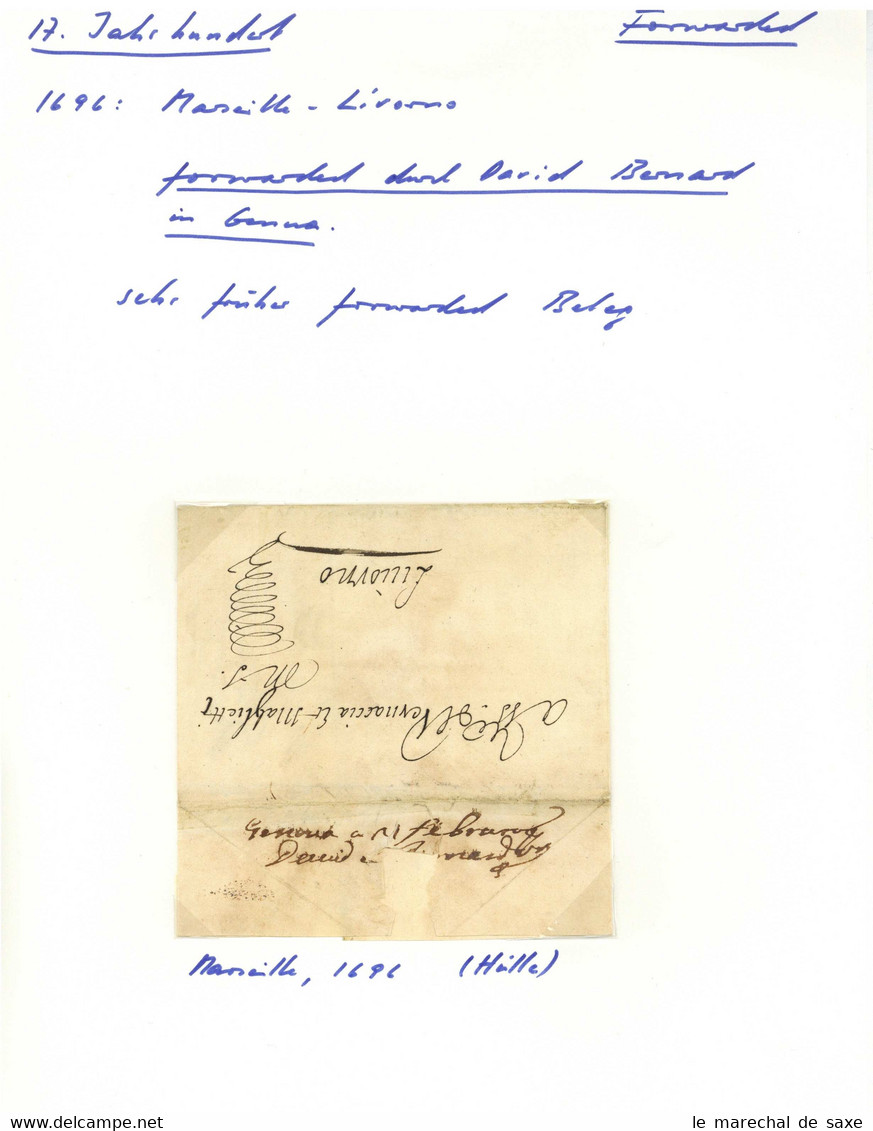 17. Jahrhundert
Forwarded
1696: Marseille - Livorno
forwarded durch David Bernard
in Genua.
sehr früher forwarded Beleg
Liuorno
M S.
Vernaccia Et Maglietti
Genoua a 21 Febraro
Dauid
Marseille, 1696 (Hülle)
le marechal de saxe